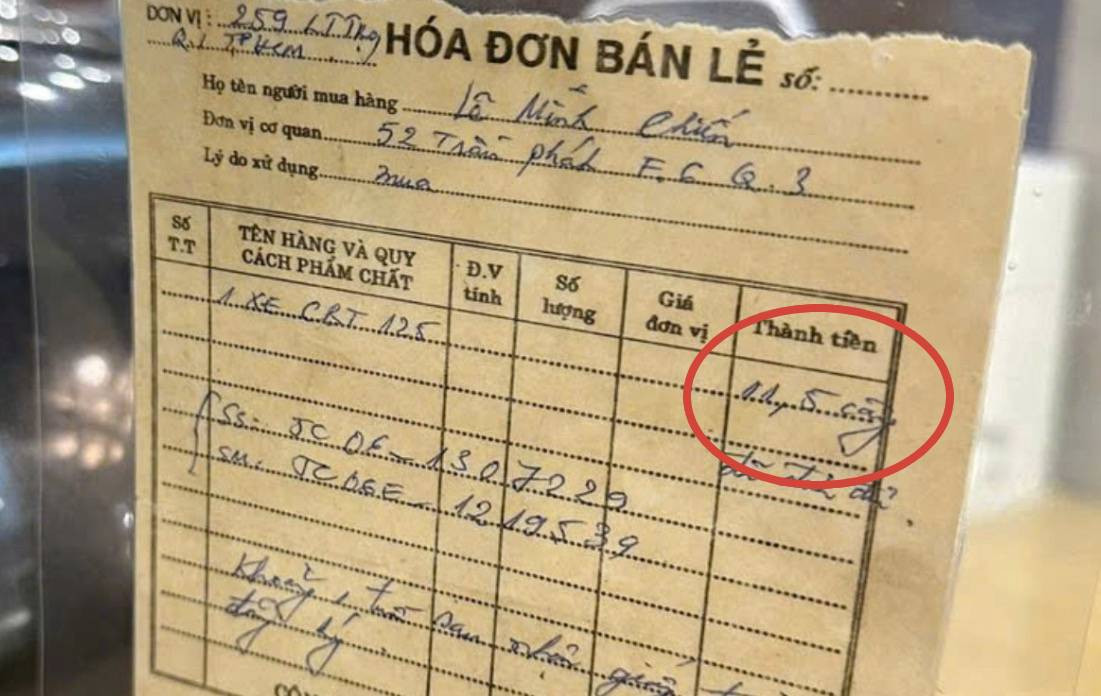 ĐƠN VỊ: 259 LTThg
Q.1 TPHCM
HÓA ĐƠN BÁN LẺ
Số:
Họ tên người mua hàng Lê Minh Chiến
Đơn vị cơ quan 52 Trần F.6 Q.3
Lý do xử dụng mua
Số T.T
TÊN HÀNG VÀ QUY CÁCH PHẨM CHẤT
Đ.V tính
Số lượng
Giá đơn vị
Thành tiền
1 XE CRT 125
11,5 cây
SS: JC06-1307229
SM: JC06E-1219539
đã
sau giấy
đăng ký